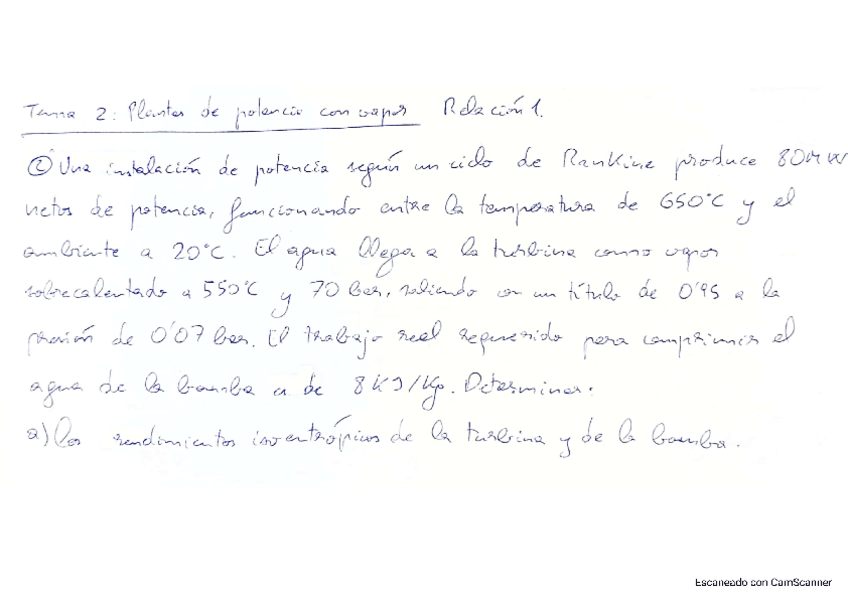 Tema 2: Plantas de potencia con vapor Relación 1.
② Una instalación de potencia según un ciclo de Rankine produce 80MW
netos de potencia, funcionando entre la temperatura de 650°C y el
ambiente a 20°C. El agua llega a la turbina como vapor
sobrecalentado a 550°C y 70 bar, saliendo con un título de 0'95 a la
presión de 0'07 bar. El trabajo real requerido para comprimir el
agua de la bomba es de 8 KJ/Kg. Determinar:
a) Los rendimientos isentrópicos de la turbina y de la bomba.
Escaneado con CamScanner